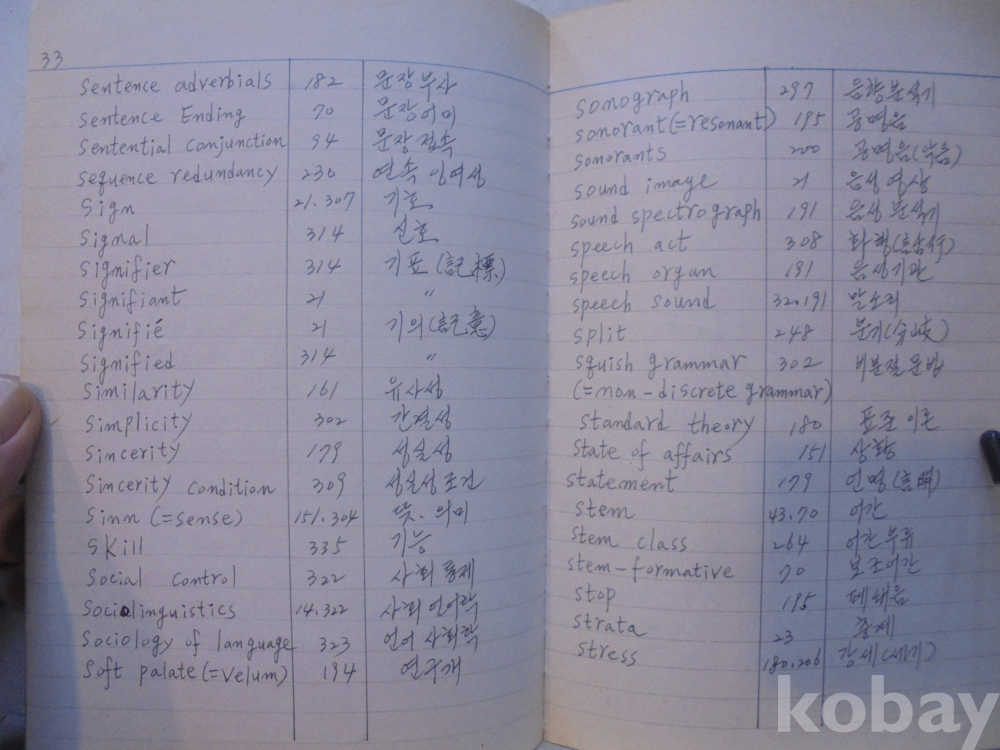 33
Sentence adverbials 182 문장부사
Sentence Ending 70 문장어미
Sentential Conjunction 94 문장접속
Sequence redundancy 230 연속 잉여성
Sign 21.307 기호
Signal 314 신호
Signifier 314 기표 (記標)
Signifiant 21 〃
Signifié 21 기의 (記意)
Signified 314 〃
Similarity 161 유사성
Simplicity 302 간결성
Sincerity 179 성실성
Sincerity condition 309 성실성 조건
Sinn (=sense) 151.304 뜻. 의미
Skill 335 기능
Social control 322 사회 통제
Sociolinguistics 14.322 사회 언어학
Sociology of language 323 언어 사회학
Soft palate (=velum) 194 연구개
sonograph 297 음향분석기
sonorant (=resonant) 195 공명음
sonorants 200 공명음(악음)
sound image 21 음성영상
sound spectrograph 191 음성 분석기
speech act 308 화행(話行)
speech organ 191 음성기관
speech sound 32.191 말소리
split 248 분기(分岐)
squish grammar 302 비분절 문법
(=non-discrete grammar)
standard theory 180 표준 이론
State of affairs 151 상황
statement 179 언명 (言明)
stem 43.70 어간
stem class 264 어간 부류
stem-formative 70 보조어간
stop 195 폐쇄음
strata 23 층계
stress 180.206 강세(세기)
kobay